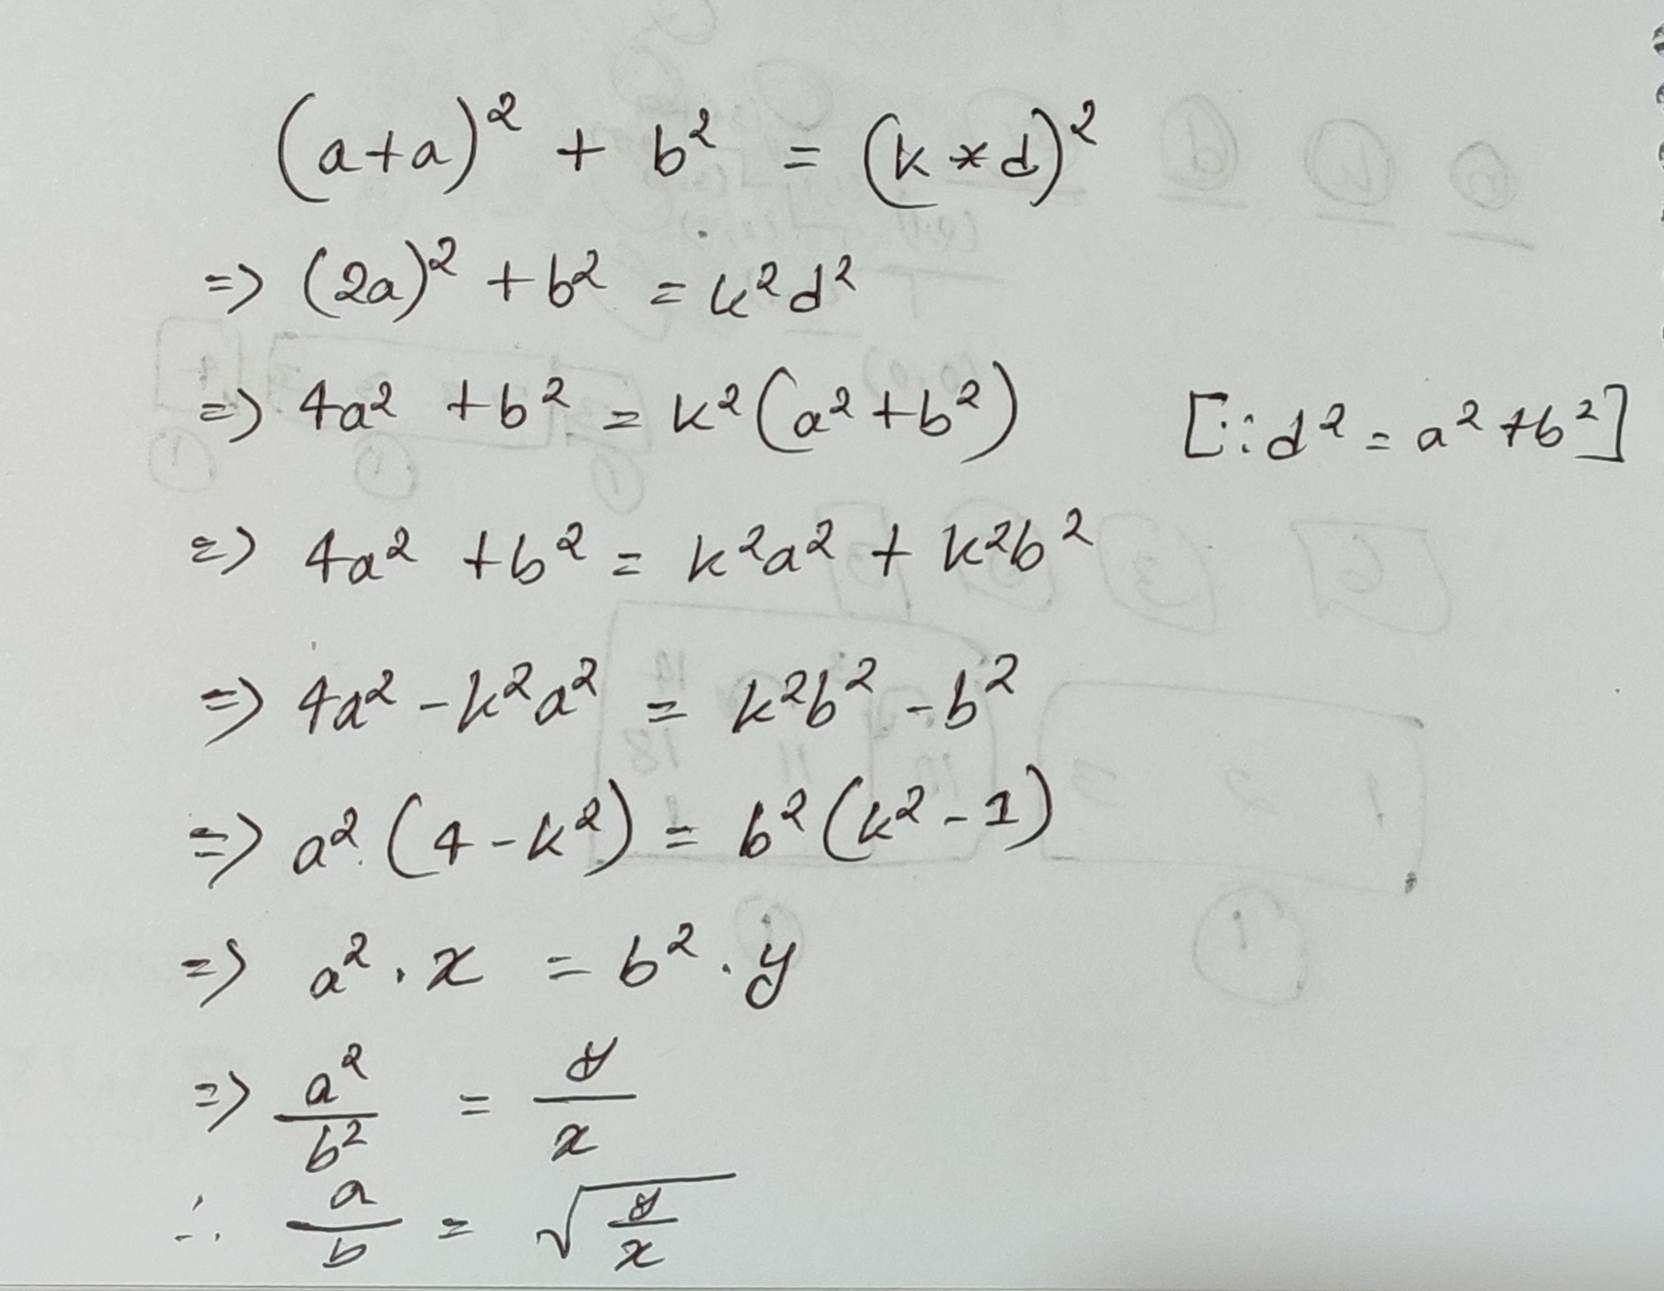 (a+a)² + b² = (k*d)²
=> (2a)² + b² = k²d²
=> 4a² + b² = k²(a²+b²) [∵ d² = a²+b²]
=> 4a² + b² = k²a² + k²b²
=> 4a² - k²a² = k²b² - b²
=> a².(4-k²) = b²(k²-1)
=> a².x = b².y
=> a²/b² = y/x
∴ a/b = √(y/x)